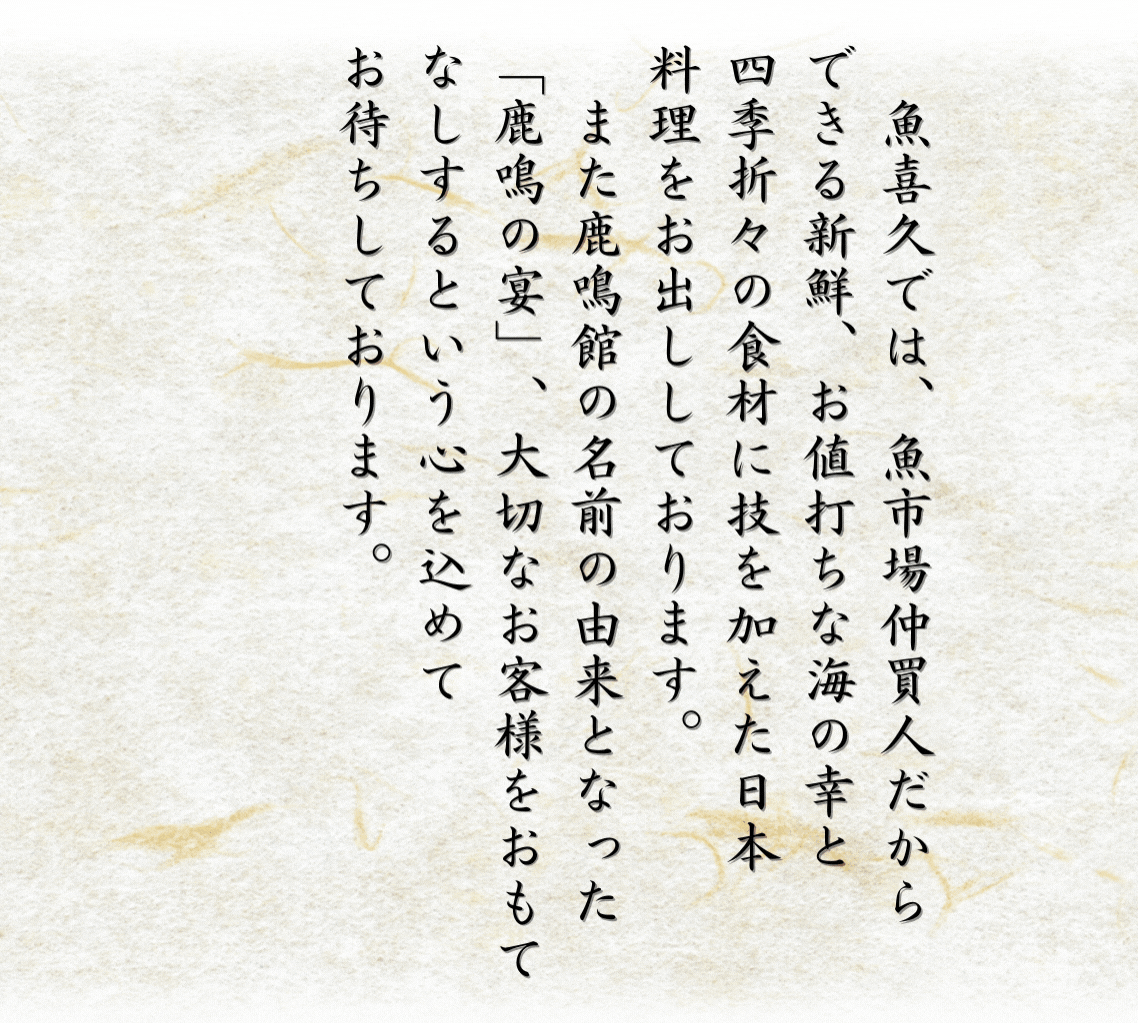 魚喜久では、魚市場仲買人だから
できる新鮮、お値打ちな海の幸と
四季折々の食材に技を加えた日本
料理をお出ししております。
また鹿鳴館の名前の由来となった
「鹿鳴の宴」、大切なお客様をおもて
なしするという心を込めて
お待ちしております。